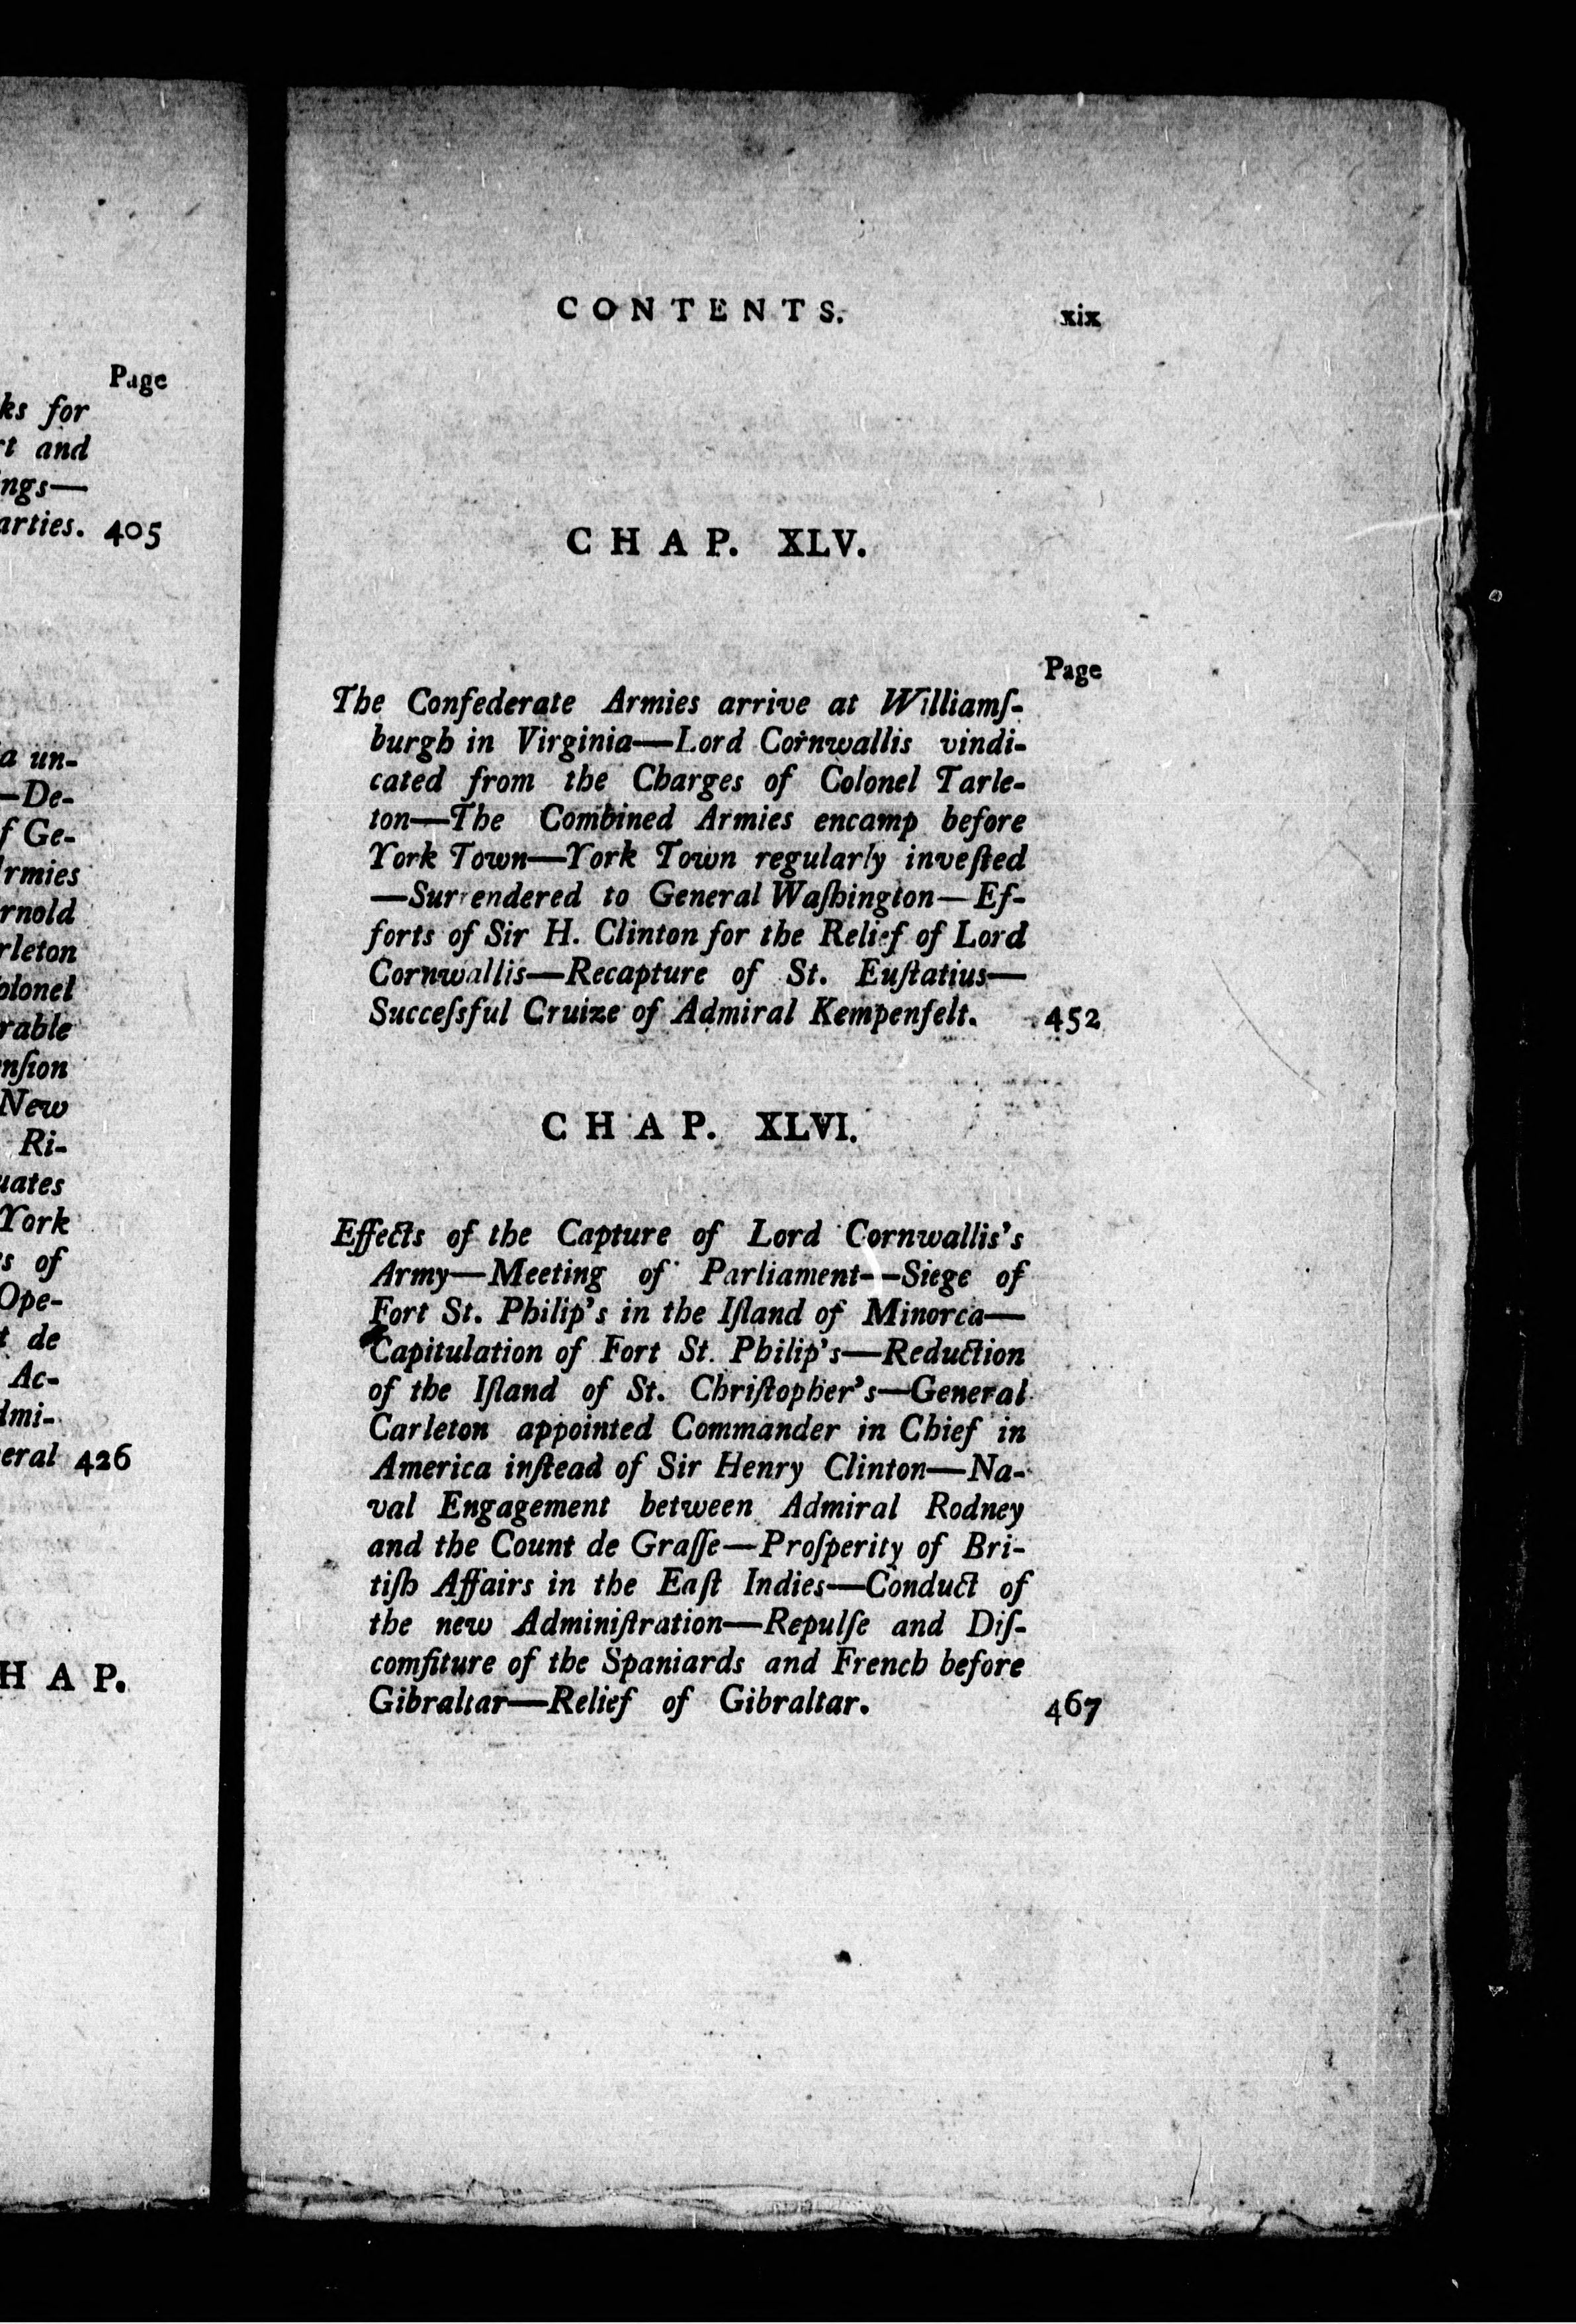 Page
ks for
rt and
ings—
arties. 405
a un-
—De-
f Ge-
Armies
rnold
rleton
olonel
rable
nſion
New
Ri-
uates
York
s of
Ope-
t de
Ac-
dmi-
eral 426
H A P.
CONTENTS. xix
CHAP. XLV.
Page
The Confederate Armies arrive at Williamſ-
burgh in Virginia—Lord Cornwallis vindi-
cated from the Charges of Colonel Tarle-
ton—The Combined Armies encamp before
York Town—York Town regularly inveſted
—Surrendered to General Waſhington—Ef-
forts of Sir H. Clinton for the Relief of Lord
Cornwallis—Recapture of St. Euſtatius—
Succeſsful Cruize of Admiral Kempenfelt. 452
CHAP. XLVI.
Effects of the Capture of Lord Cornwallis's
Army—Meeting of Parliament—Siege of
Fort St. Philip's in the Iſland of Minorca—
Capitulation of Fort St. Philip's—Reduction
of the Iſland of St. Chriſtopher's—General
Carleton appointed Commander in Chief in
America inſtead of Sir Henry Clinton—Na-
val Engagement between Admiral Rodney
and the Count de Graſſe—Proſperity of Bri-
tiſh Affairs in the Eaſt Indies—Conduct of
the new Adminiſtration—Repulſe and Diſ-
comfiture of the Spaniards and French before
Gibraltar—Relief of Gibraltar. 467